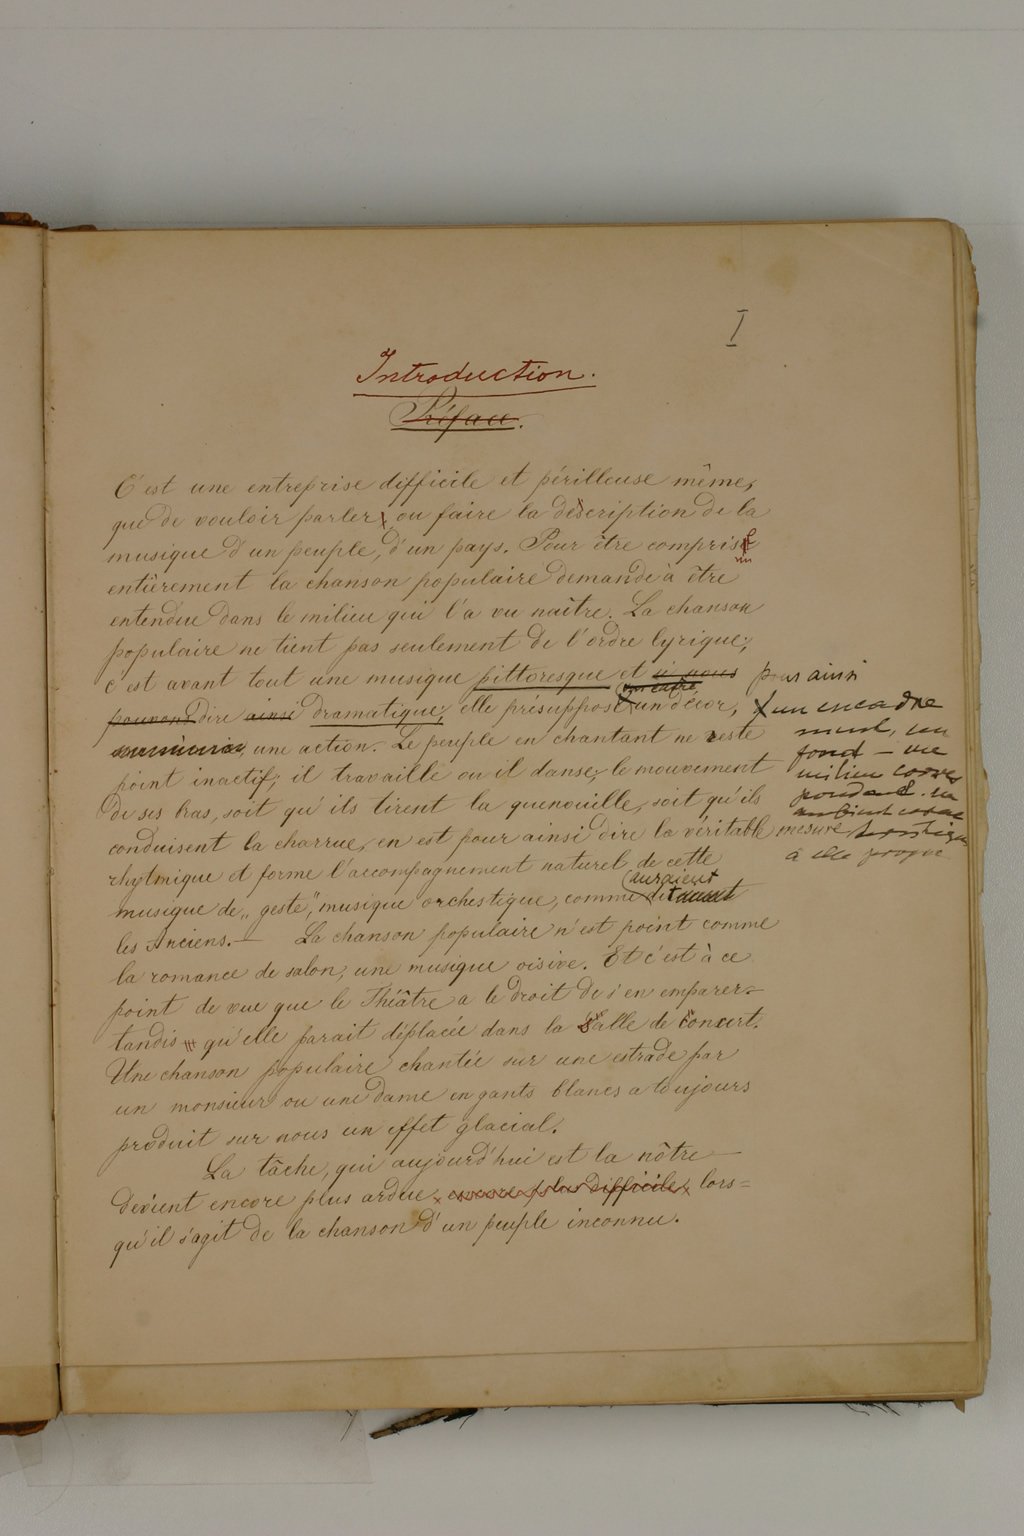 I
Introduction.
Préface.
C'est une entreprise difficile et périlleuse même,
que de vouloir parler, ou faire la description de la
musique d'un peuple, d'un pays. Pour être comprise
entièrement la chanson populaire demande à être
entendue dans le milieu qui l'a vu naître. La chanson
populaire ne tient pas seulement de l'ordre lyrique;
c'est avant tout une musique pittoresque et si nous pour ainsi
pouvons dire ainsi dramatique; elle présuppose un cadre un décor,
une action. Le peuple en chantant ne reste
point inactif; il travaille ou il danse; le mouvement
de ses bras, soit qu'ils tirent la quenouille, soit qu'ils
conduisent la charrue, en est pour ainsi dire la véritable mesure
rhytmique et forme l'accompagnement naturel de cette
musique de „geste", musique orchestique, comme auraient dit
les Anciens. — La chanson populaire n'est point comme
la romance de salon, une musique oisive. Et c'est à ce
point de vue que le Théâtre a le droit de s'en emparer —
tandis qu'elle parait déplacée dans la Salle de Concert.
Une chanson populaire chantée sur une estrade par
un monsieur ou une dame en gants blancs a toujours
produit sur nous un effet glacial.
La tâche, qui aujourd'hui est la nôtre —
devient encore plus ardue, encore plus difficile, lors=
qu'il s'agit de la chanson d'un peuple inconnu.
un encadre
ment, un
fond — une
milieu corres
pondant. un
à elle propre